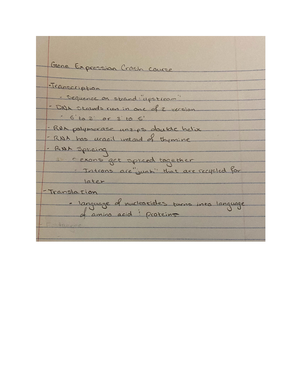 Gene Expression Crash Course
- Transcription
Sequence on strand "upstream"
- DNA strands run in one of 2 version
5 to 3 or 3 to 5
- RNA polymerase unzips double helix
- RNA has uracil instead of thymine
- RNA Splicing
exons get spliced together
Introns are "junk" that are recycled for
later
- Translation
language of nucleotides turns into language
of amino acid / proteins